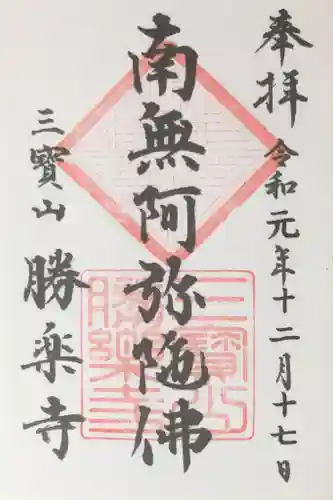 奉拝
令和元年十二月十七日
南無阿弥陀佛
三寳山
勝楽寺
三寳山
勝樂寺